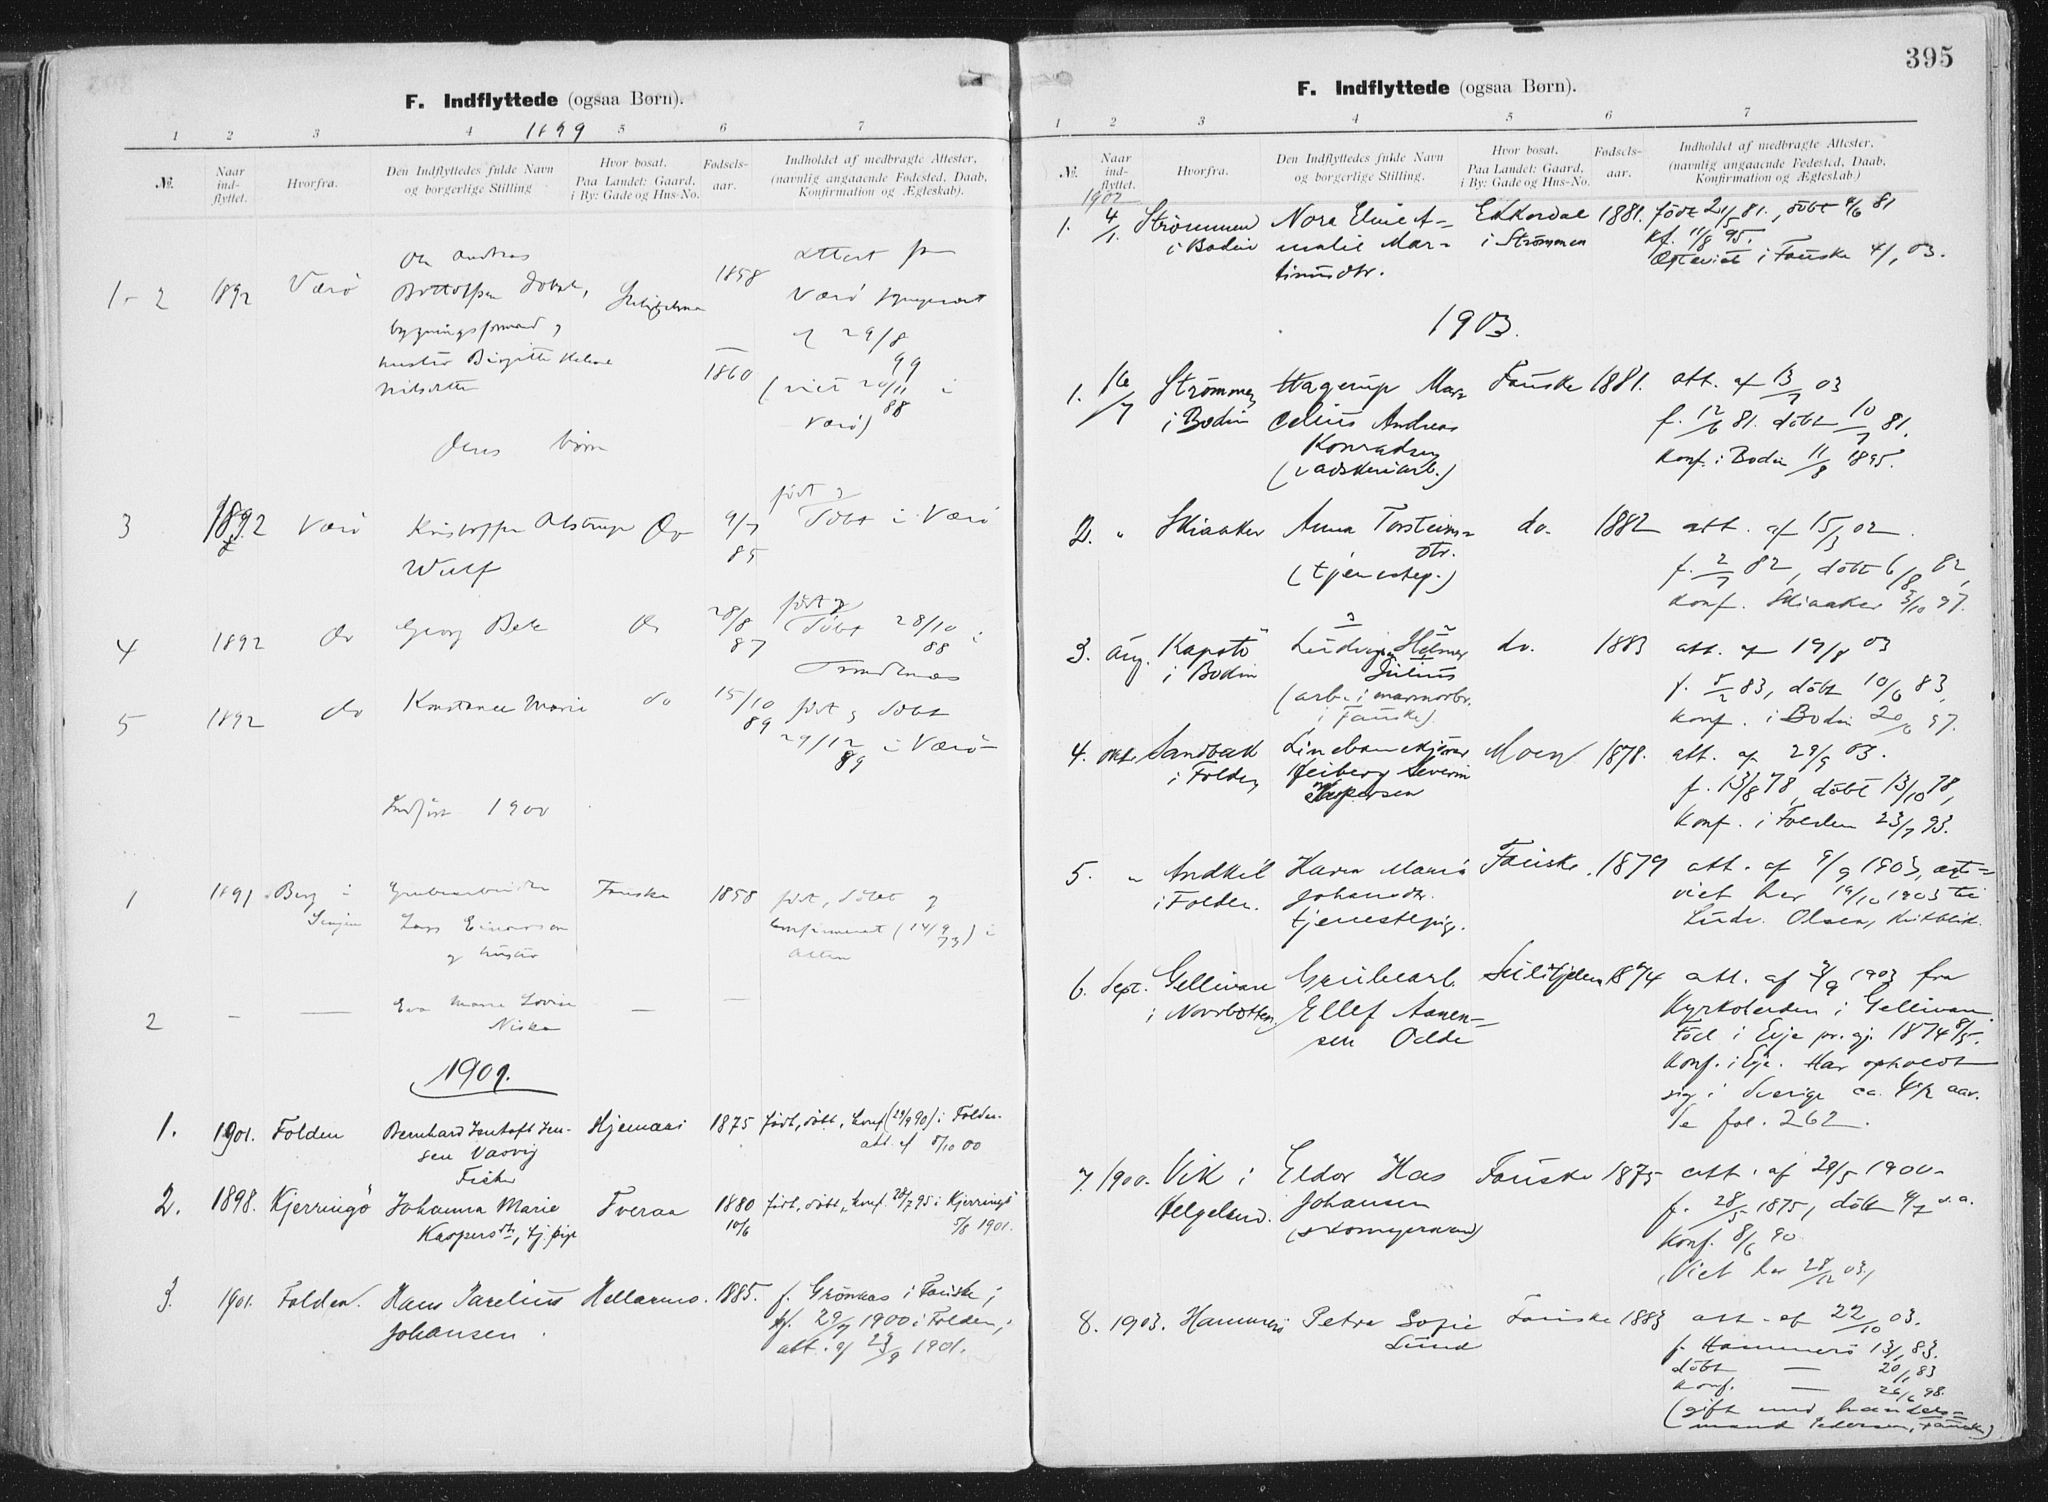 F. Indflyttede (ogsaa Børn).
1899
1 2 3 4 5 6 7
№.
Naar ind-flyttet.
Hvorfra.
Den Indflyttedes fulde Navn og borgerlige Stilling
Hvor bosat. Paa Landet: Gaard, i By: Gade og Hus-No.
Fødsels-aar.
Indholdet af medbragte Attester, (navnlig angaaende Fødested, Daab, Konfirmation og Ægteskab).
1-2 1892 Værö
Ole Andreas
1858
Attest fra
bygningsformand,
af 29/8
hustru Birgitte
1860
99
(viet 20/11 i
88
Værö)
Deres børn
3 1892 Værö Kristoffer Alstrup Do 9/7
født og
døbt i Værö
Wulf
85
4 1892 do Georg do 28/8
født og
døbt 28/10 i
87
88
Trondenæs
5 1892 do Konstance Marie do 15/10
født og døbt
89
29/12 i Værö
89
Indført 1900
1 1891 Berg i Grubearbeider Fauske 1858 født, døbt og
Senjen Lars
konfirmeret (14/9 73) i
og hustru
Alten
2 — — Eva Marie Lovise — —
Niska
1901.
1. 1901. Folden Bernhard Jentoft Jen- 1875 født, døbt, konf (29/9 90) i Folden.
sen Vasvig
att. af 5/10 00
Fisker
2. 1898. Kjerringö Johanna Marie Tveraa 1880 født, døbt, konf. 28/7 95 i Kjerringö
Kaspersdtr, tj.pige 10/6
5/8 1901.
3. 1901. Folden. Hans Parelius Hellarmo. 1885. f. Grönaas i Fauske;
Johansen.
kf. 29/7 1900 i Folden;
att. af 23/9 1901.
395
F. Indflyttede (ogsaa Børn).
1 2 3 4 5 6 7
№.
Naar ind-flyttet.
Hvorfra.
Den Indflyttedes fulde Navn og borgerlige Stilling.
Hvor bosat. Paa Landet: Gaard, i By: Gade og Hus-No.
Fødsels-aar.
Indholdet af medbragte Attester, (navnlig angaaende Fødested, Daab, Konfirmation og Ægteskab.)
1902
1. 4/1. Strömmen Nora Eline A- 1881. født 21/5 81., döbt 6/6 81
i Bodin malie Mar- i Strömmen kf. 11/8 95.
tinusdtr.
Ægteviet i Fauske 4/1 03.
1903.
1. 16/7 Strömmen Hagerup Mar- Fauske 1881. att. af 13/7 03
i Bodin celius Andreas f. 12/6 81. döbt 10/7 81.
Konradsen
konf. i Bodin 11/8 1895.
2. " Skiaaker Anna Torsteins- do. 1882 att. af 15/3 02.
dtr.
(tjenestep.) f. 2/7 82, döbt 6/8 82,
konf. Skiaaker 3/10 97.
3. Aug. Kapstö Ludvig Hilmer do. 1883 att. af 19/8 03
i Bodin Julius f. 5/2 83, döbt 10/6 83,
(arb. i marmorbr. i Fauske). konf. i Bodin 20/6 97.
4. okt. Sandbak Moen 1878. att. af 29/9 03.
i Folden Zeiberg Severin f. 13/8 78, döbt 13/10 78,
Kaspersen
konf. i Folden 23/7 93.
5. " Andkil Hanna Maria Fauske. 1879 att. af 9/9 1903, ægt-
i Folden. Johansdtr. viet her 19/10 1903 til
tjenestepige. Ludv. Olsen, Kvitblik.
6. Sept. Gellivare Grubearb. Sulitjelma 1874 att. af 3/9 1903 fra
i Norrbotten Ellef Aanen- Kyrkoherden i Gellivare.
sen Odde Föd i Evje pr.gj. 1874 8/5.
Konf. i Evje. Har opholdt
sig i Sverige ca. 4 1/2 aar.
Se fol. 262.
7. 1900. Vik i Eldor Has Fauske 1875 att. af 29/5 1900.
Helgeland. Johansen f. 28/5 1875, döbt 4/7 s.a.
(skomagersvend) Konf. 8/6 90
Viet her 28/12 03.
8. 1903. Hammerö Petra Sofie Fauske 1883 att. af 22/10 03.
Lund f. Hammerö 13/1 83.
döbt — 20/1 83
konf. — 26/6 98.
(gift med handels-
mand Pedersen, Fauske)